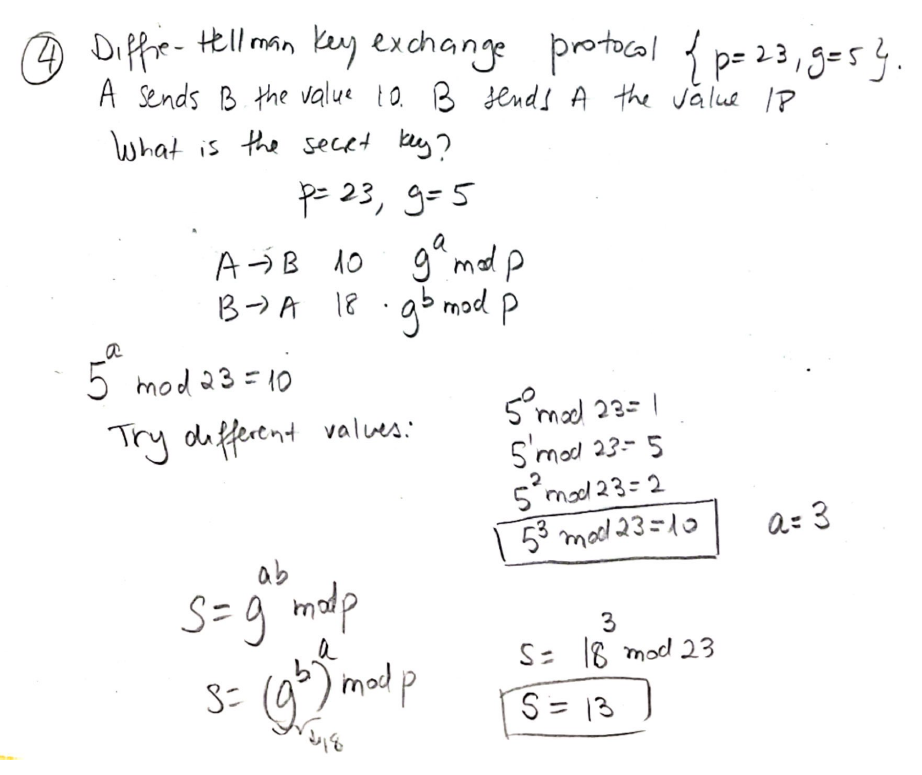 ④ Diffie-Hellman key exchange protocol { p=23, g=5 }.
A sends B the value 10. B sends A the value 18
What is the secret key?
p=23, g=5
A→B 10 g^a mod p
B→A 18 . g^b mod p
5^a mod 23 = 10
Try different values:
5^0 mod 23 = 1
5^1 mod 23 = 5
5^2 mod 23 = 2
5^3 mod 23 = 10 a=3
S = g^ab mod p
S = (g^b)^a mod p
↳18
S = 18^3 mod 23
S = 13